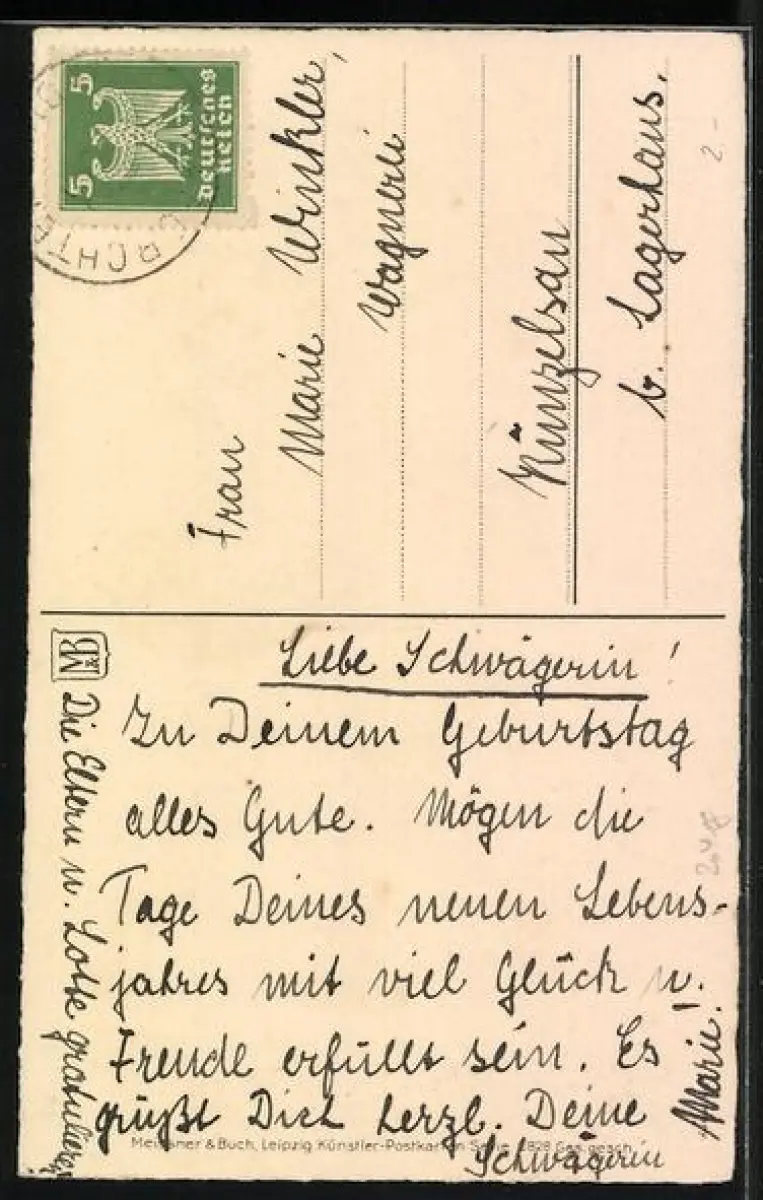 Liebe Schwägerin!
Zu Deinem Geburtstag
alles Gute. Mögen die
Tage Deines neuen Lebens-
jahres mit viel Glück u.
Freude erfüllt sein. Es
grüßt Dich herzl. Deine
Schwägerin
Marie.
Die Eltern u. Lotte gratulieren
M&B
Meissner & Buch, Leipzig Künstler-Postkarten Serie 2828 Ges. gesch.
5 5
Deutsches
Reich
Frau
Marie Winkler,
Wagnerei
Künzelsau
b. Lagerhaus.
2.-